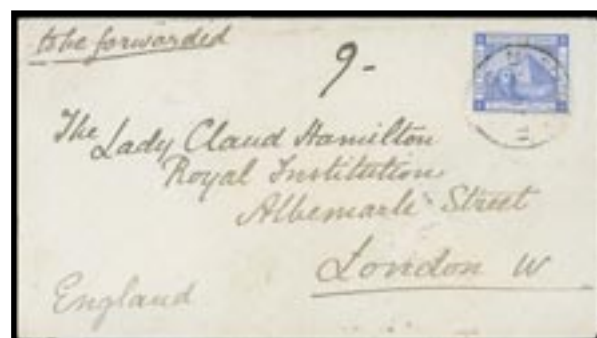 to be forwarded
9-
The Lady Claud Hamilton
Royal Institution
Albemarle Street
London W
England